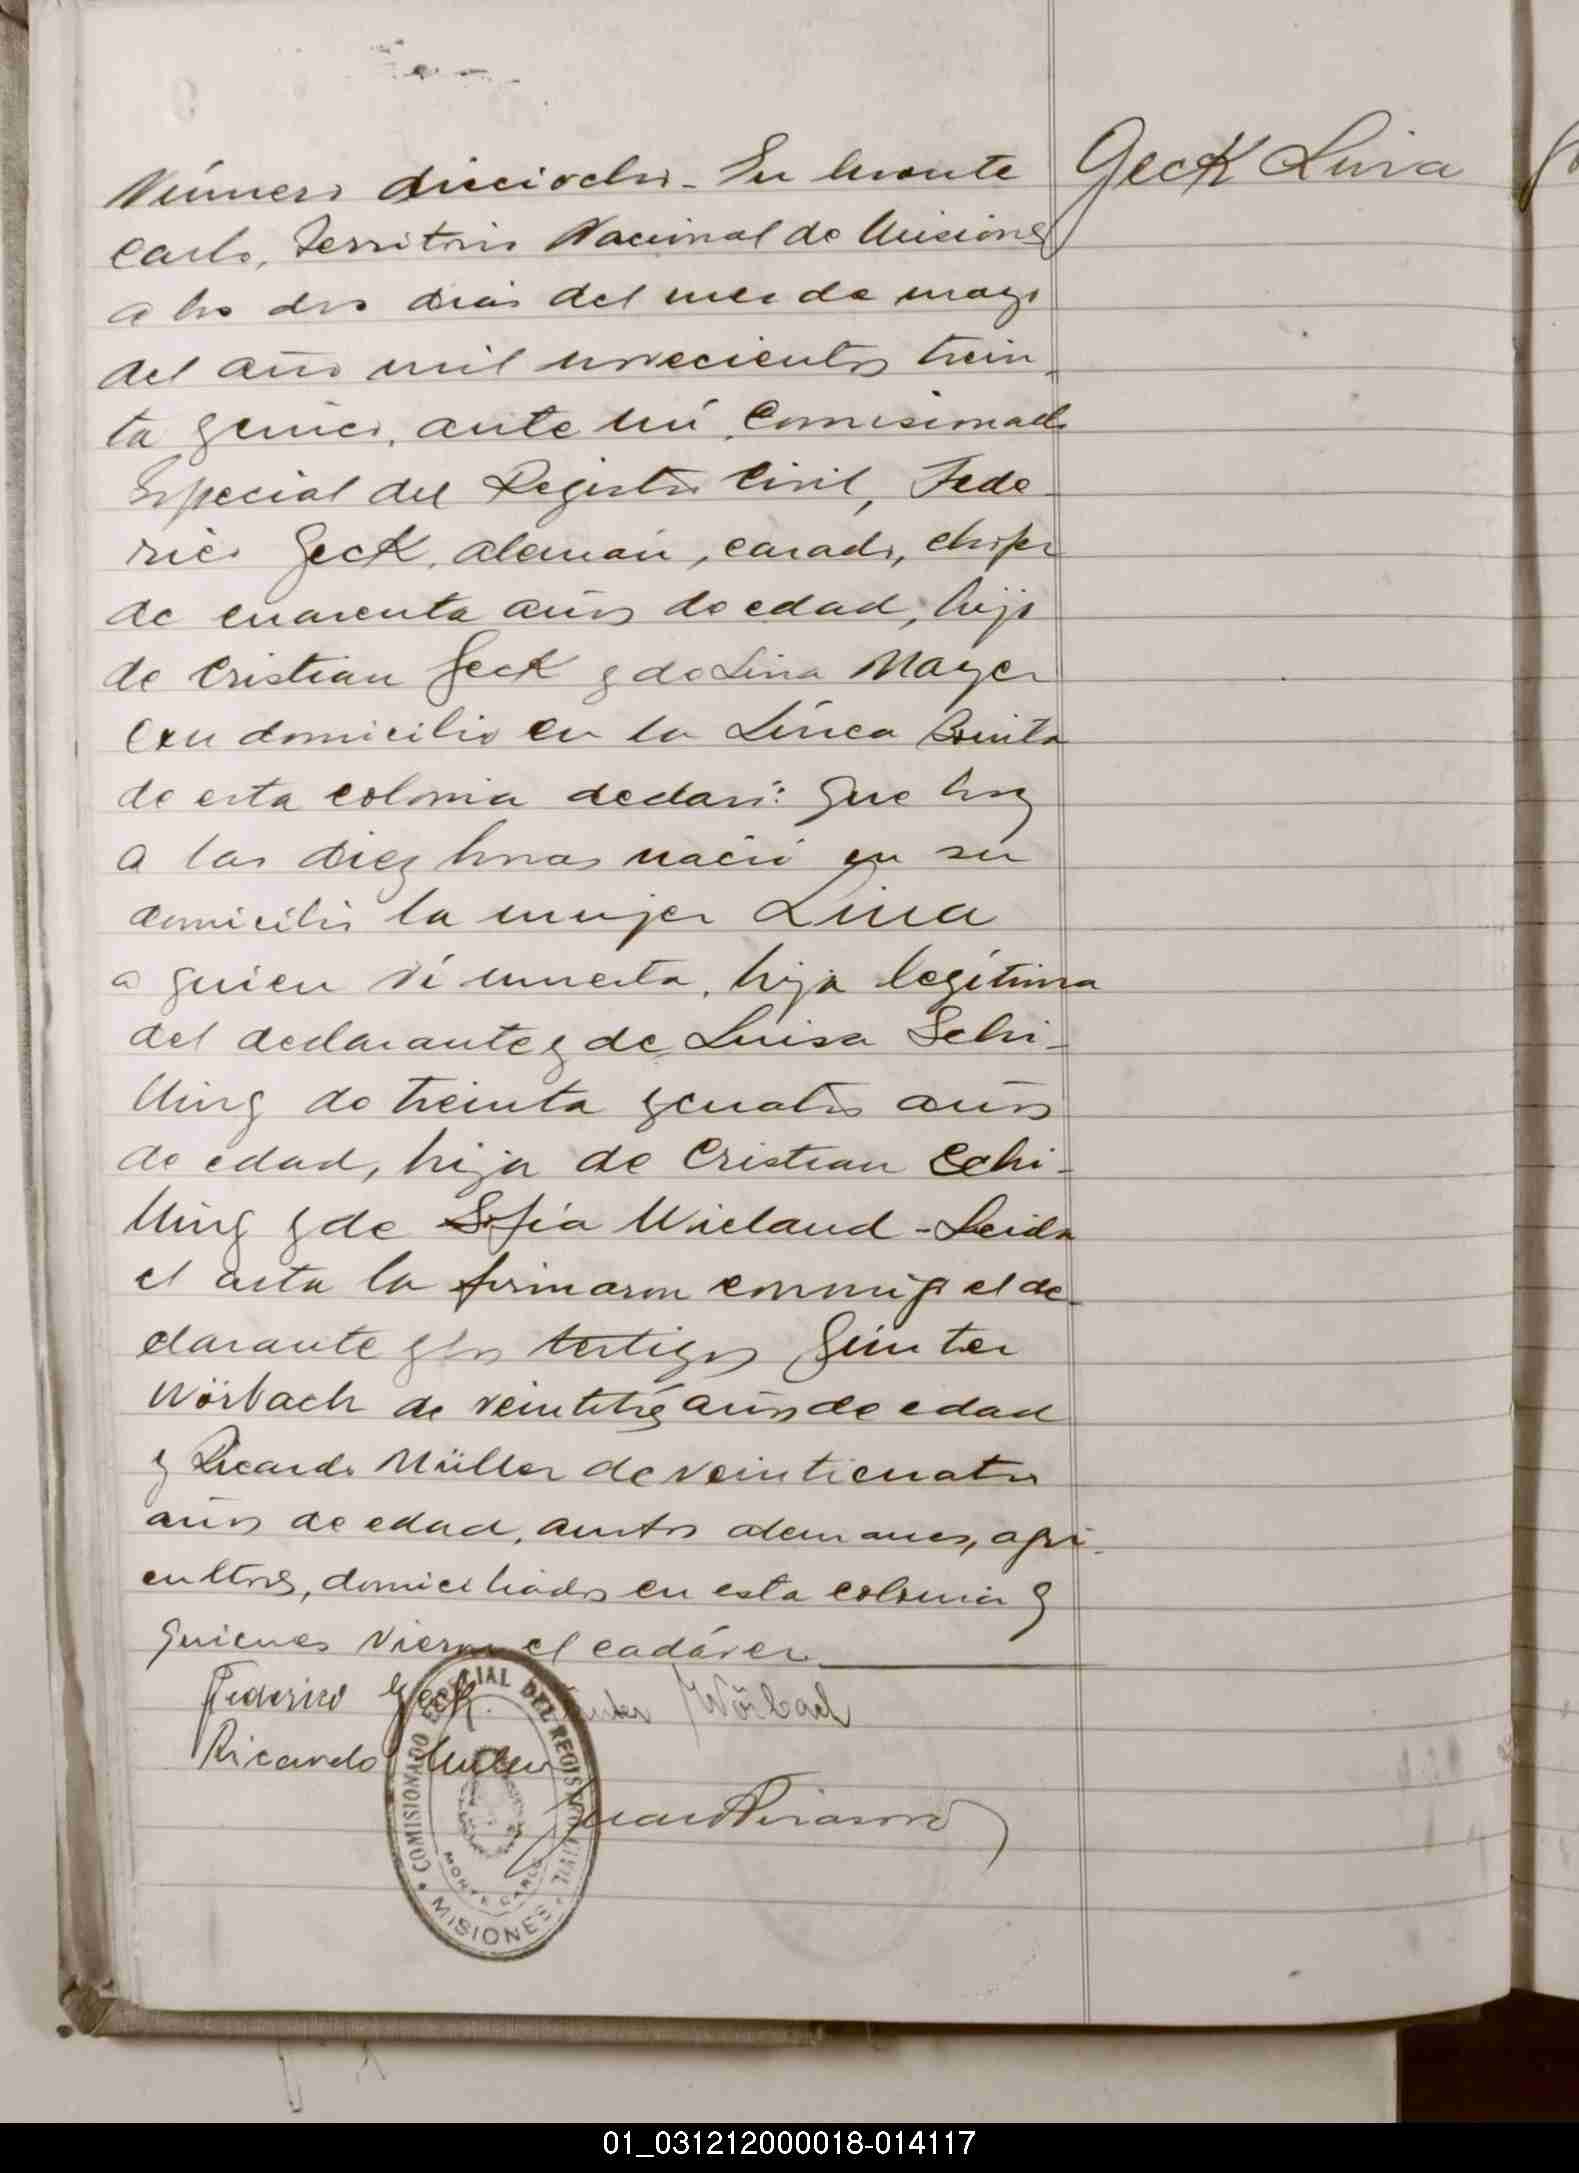 Número dieciocho - En Monte
Carlo, Territorio Nacional de Misiones
a los dos dias del mes de mayo
del año mil novecientos trein-
ta y cinco, ante mí, Comisionado
Especial del Registro Civil, Fede-
rico Geck, alemán, casado, chofer
de cuarenta años de edad, hijo
de Cristian Geck y de Lina Mayer
con domicilio en la Línea Bonita
de esta colonia declaró: que hoy
a las diez horas nació en su
domicilio la mujer Lina
a quien ví muerta, hija legítima
del declarante y de Luisa Schi-
lling de treinta y cuatro años
de edad, hija de Cristian Schi-
lling y de Sofía Wieland - Leida
el acta la firmaron conmigo el de-
clarante y los testigos Günter
Wörbach de veintitrés años de edad
y Ricardo Müller de veinticuatro
años de edad, ambos alemanes, agri-
cultores, domiciliados en esta colonia y
quienes vieron el cadáver.
Geck Lina
Federico Geck. Günter Wörbach
Ricardo Müller
COMISIONADO ESPECIAL DEL REGISTRO CIVIL
MONTE CARLO
MISIONES
01_031212000018-014117